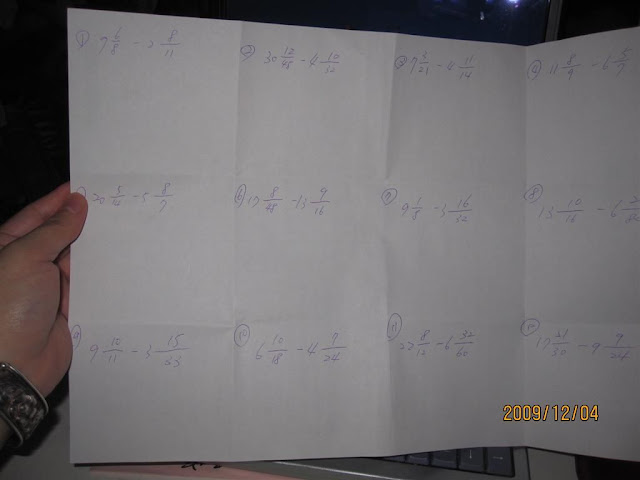 ① 9 6/8 - 2 8/11
② 30 12/48 - 4 10/32
③ 9 3/21 - 4 11/14
④ 11 8/9 - 6 5/7
20 5/14 - 5 8/7
⑥ 19 8/48 - 13 9/16
⑦ 9 1/8 - 3 16/32
⑧ 13 10/16 - 6
⑨ 9 10/11 - 3 15/33
6 10/18 - 4 9/24
⑪ 27 8/12 - 6
17 21/30 - 9 9/24
2009/12/04